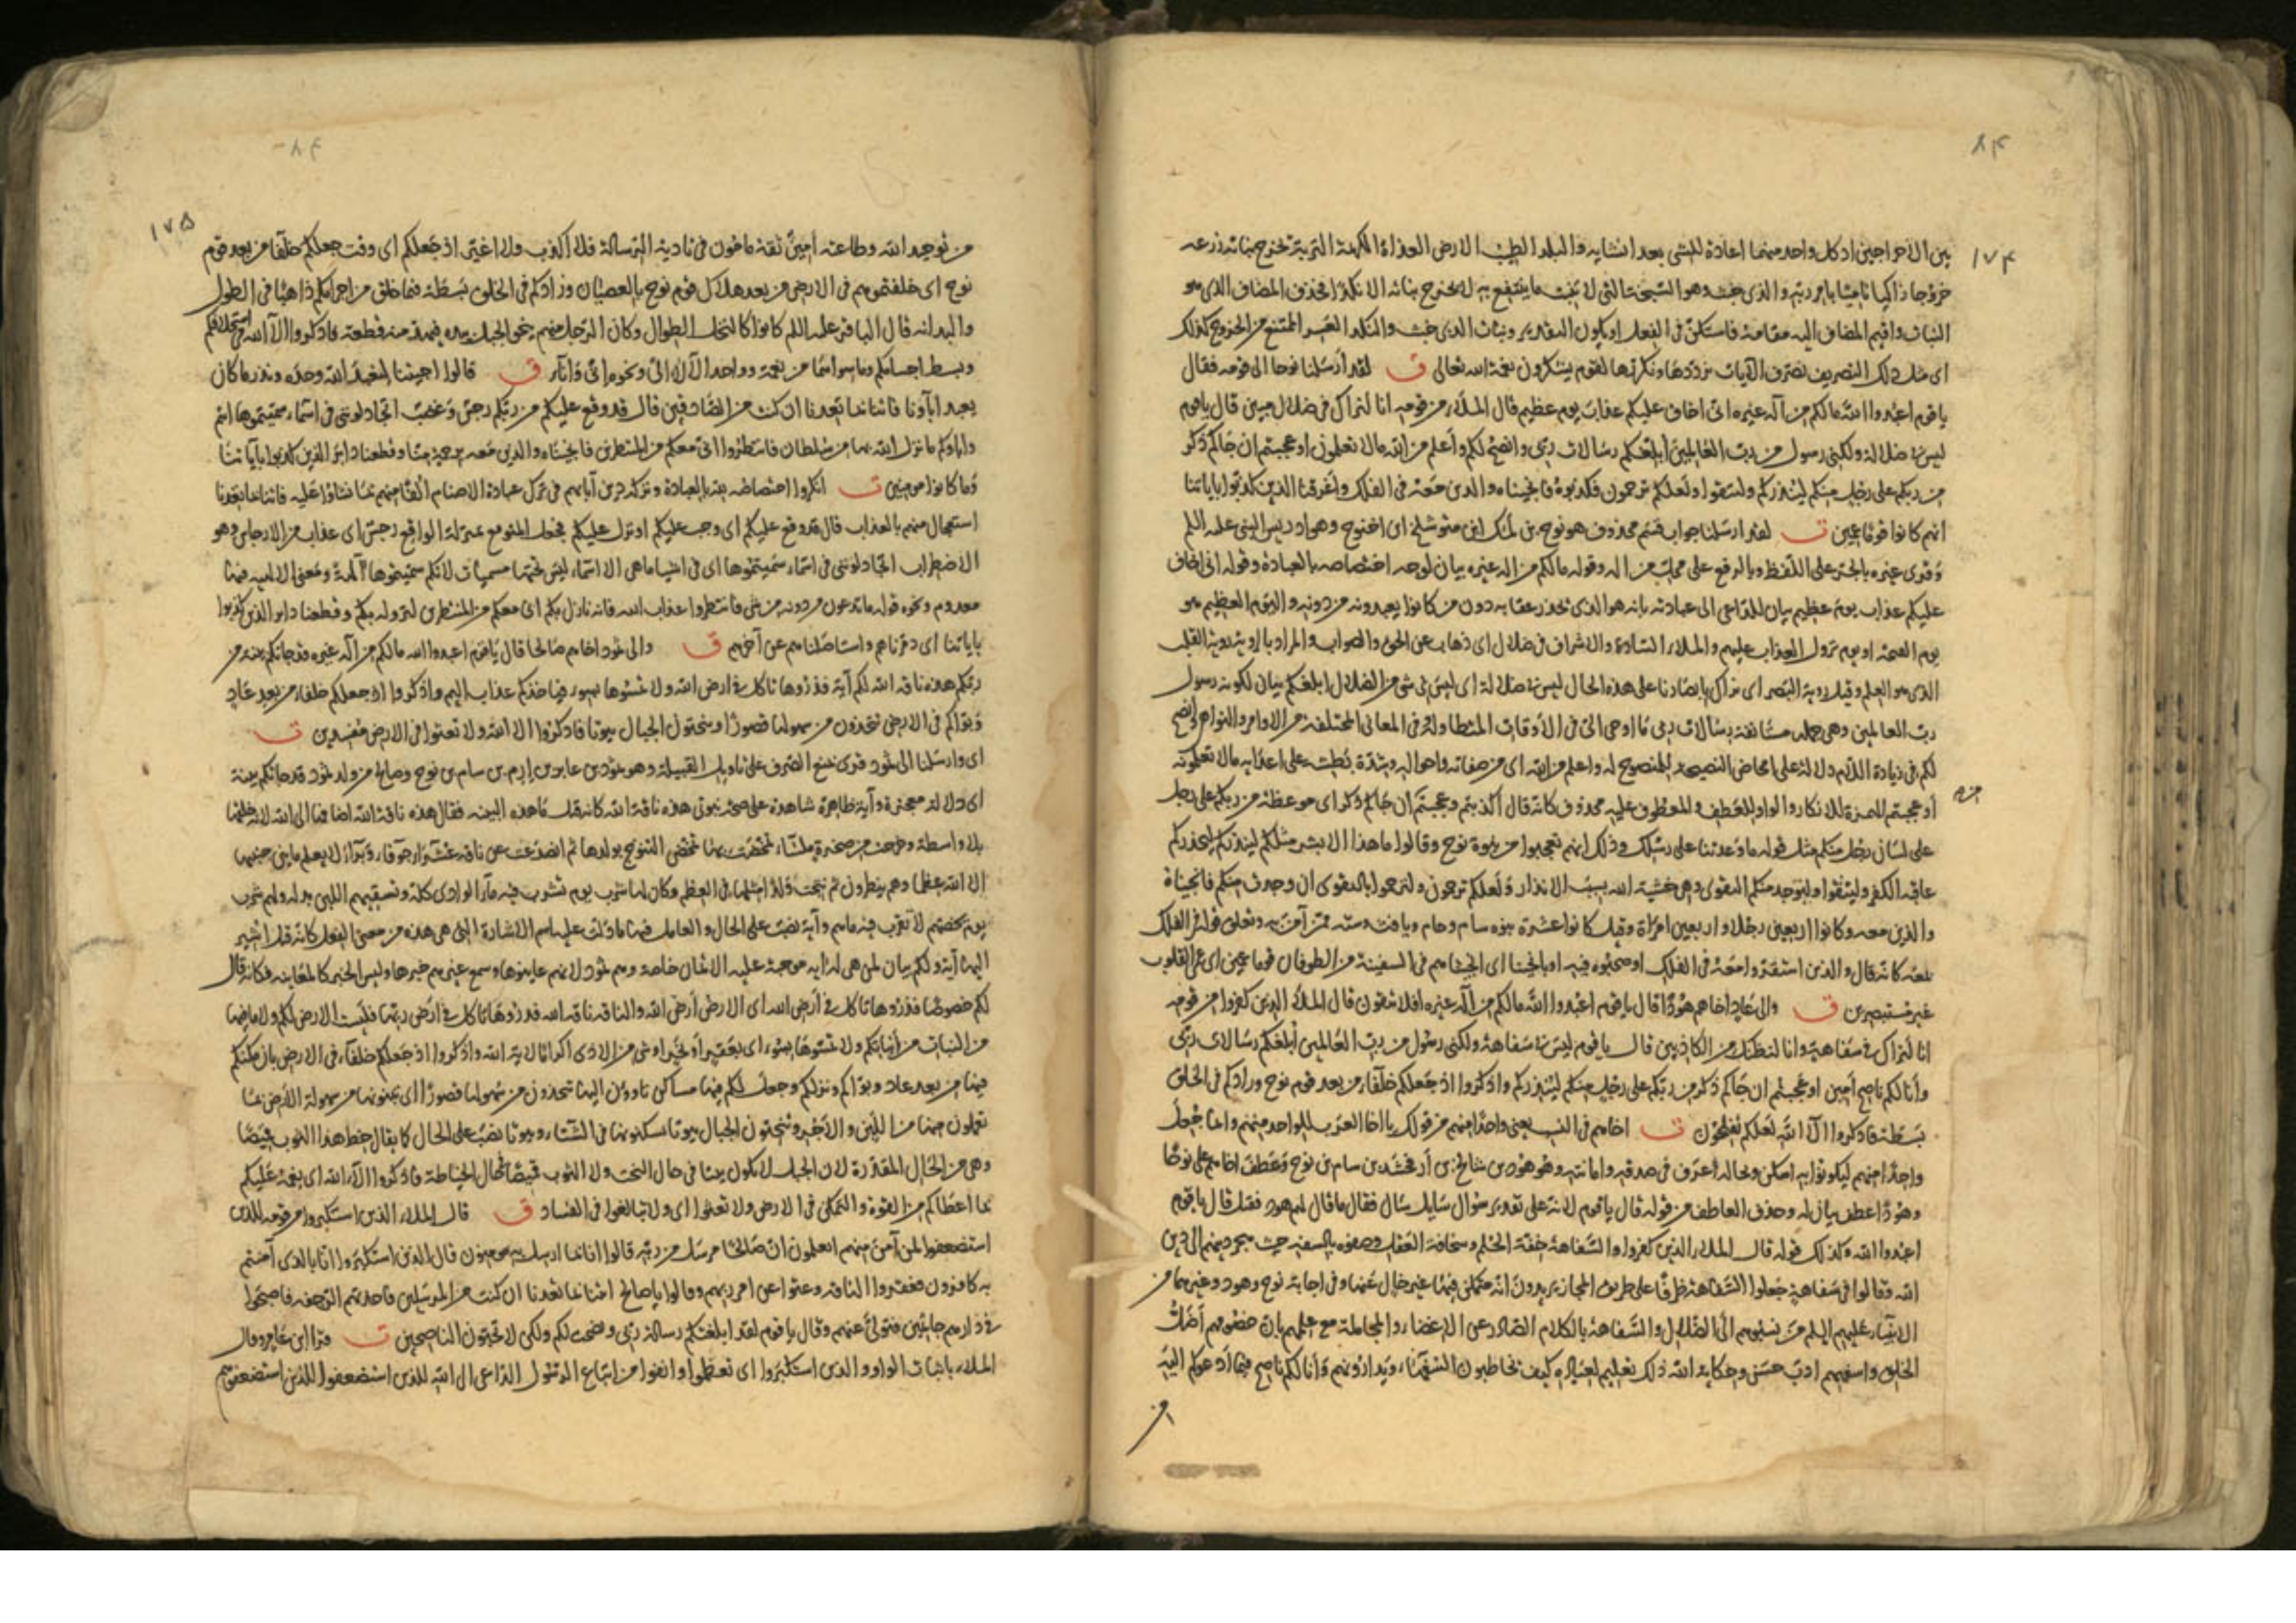 ٨٤
١٧٤
بين الاخراجين اذ كل واحد منهما اعادة للشئ بعد انشائه والبلد الطيب الارض العذاة الكريمة التربة يخرج نباته زرعه
خروجا زاكيا ناميا بامر ربه والذى خبث وهو السبخة التى لا تنبت ما ينتفع به لا يخرج نباته الا نكدا فحذف المضاف الذى هو
النبات واقيم المضاف اليه مقامه فاستكن فى الفعل او يكون التقدير ونبات الذى خبث والنكد العسر الممتنع من الخروج كذلك
اى مثل ذلك التصريف نصرف الآيات نرددها ونكررها لقوم يشكرون نعمة الله تعالى ق لقد ارسلنا نوحا الى قومه فقال
يا قوم اعبدوا الله مالكم من آله غيره انى اخاف عليكم عذاب يوم عظيم قال الملأ من قومه انا لنراك فى ضلال مبين قال يا قوم
ليس بى ضلالة ولكنى رسول من رب العالمين ابلغكم رسالات ربى وانصح لكم واعلم من الله مالا تعلمون اوعجبتم ان جاكم ذكر
من ربكم على رجل منكم لينذركم ولتتقوا ولعلكم ترحمون فكذبوه فانجيناه والذين معه فى الفلك واغرقنا الذين كذبوا باياتنا
انهم كانوا قوما عمين ت لقد ارسلنا جواب قسم محذوف هو نوح بن لمك ابن متوشلخ ابن اخنوخ وهو ادريس النبى عليه السلم
وقرى غيره بالجر على اللفظ وبالرفع على محل من اله وقوله مالكم من اله غيره بيان لوجه اختصاصه بالعبادة وقوله انى اخاف
عليكم عذاب يوم عظيم بيان للداعى الى عبادته بانه هو الذى تحذر عقابه دون من كانوا يعبدونه من دونه واليوم العظيم هو
يوم القيمة او يوم نزول العذاب عليهم والملاء السادة والاشراف فى ضلال اى ذهاب عن الحق والصواب والمراد بالروية روية القلب
الذى هو العلم وقيل روية البصر اى نراك بابصارنا على هذه الحال ليس بى ضلالة اى ليس بى شى من الضلال ابلغكم بيان لكونه رسول
رب العالمين وهى جملة مستانفة رسالات ربى ما اوحى الى فى الاوقات المتطاولة فى المعانى المختلفة من الاوامر والنواهى وانصح
لكم فى زيادة اللام دلالة على امحاض النصيحة للمنصوح له واعلم من الله اى من صفاته واحواله وشدة بطشه على اعدايه مالا تعلمونه
أوعجبتم الهمزة للانكار والواو للعطف والمعطوف عليه محذوف كانه قال اكذبتم وعجبتم ان جاكم ذكر اى موعظة من ربكم على رجل
على لسان رجل منكم مثل قوله ما وعدتنا على رسلك وذلك انهم تعجبوا من نبوة نوح وقالوا ما هذا الا بشر مثلكم لينذركم ليحذركم
عاقبة الكفر ولتتقوا وليوجد منكم التقوى وهى خشية الله بسبب الانذار ولعلكم ترحمون ولترحموا بالتقوى ان وجدت منكم فانجيناه
والذين معه وكانوا اربعين رجلا واربعين امراة وقيل كانوا عشرة بنوه سام وحام ويافث وستة ممن آمن به وتعلق قوله فى الفلك
بمعه كانه قال والذين استقروا معه فى الفلك او صحبوه فيه او بانجينا اى انجيناهم فى السفينة من الطوفان قوما عمين اى عمى القلوب
غير مستبصرين ق والى عاد اخاهم هودا قال يا قوم اعبدوا الله مالكم من آله غيره افلا تتقون قال الملأ الذين كفروا من قومه
انا لنراك فى سفاهة وانا لنظنك من الكاذبين قال يا قوم ليس بى سفاهة ولكنى رسول من رب العالمين ابلغكم رسالات ربى
وأنا لكم ناصح امين اوعجبتم ان جاكم ذكر من ربكم على رجل منكم لينذركم واذكروا اذ جعلكم خلفاء من بعد قوم نوح وزادكم فى الخلق
بسطة فاذكروا آلاء الله لعلكم تفلحون ت اخاهم فى النسب يعنى واحدا منهم من قولك يا اخا العرب للواحد منهم وانما جعل
واحدا منهم ليكونوا به اسكن وبحاله أعرف فى صدقه وامانته وهو هود بن شالخ بن أرفخشد بن سام بن نوح وعطف اخاهم على نوحا
وهودا عطف بيان له وحذف العاطف من قوله قال يا قوم لانه على تقدير سوال سايل سال فقال ما قال لهم هود فقيل قال يا قوم
اعبدوا الله وكذلك قوله قال الملاء الذين كفروا والسفاهة خفة الحلم وسخافة العقل وصفوه بالسفه حيث هجر دينهم الى دين
الله فقالوا فى سفاهة جعلوا السفاهة ظرفا على طريق المجاز يريدون انه متمكن فيها غير خال عنها وفى اجابة نوح وهود وغيرهما من
الانبياء عليهم السلم من نسبوهم الى الضلال والسفاهة بالكلام الصادر عن الاغضاء والمجاملة مع علمهم بان خصومهم أضل
الخلق واسفههم ادب حسن وحكاية الله ذلك تعليم لعباده كيف يخاطبون السفهاء ويدارونهم وأنا لكم ناصح فيما ادعوكم اليه
٨٤
١٧٥
من توحيد الله وطاعته امين ثقة مامون فى تادية الرسالة فلا اكذب ولا اغير اذ جعلكم اى وقت جعلكم خلفا من بعد قوم
نوح اى خلفتموهم فى الارض من بعد هلاك قوم نوح بالعصيان وزادكم فى الخلق بسطة فيما خلق من اجرامكم ذاهبا فى الطول
والبدانة قال الباقر عليه السلم كانوا كالنخل الطوال وكان الرجل منهم ينحو الجبل بيده فيهدم منه قطعة فاذكروا آلاء الله فى استخلافكم
وبسط اجسامكم وما سواهما من نعمه وواحد الآلاء الى ونحوه انى وآناء ق قالوا اجيتنا لنعبد الله وحده ونذر ما كان
يعبد اباؤنا فاتنا بما تعدنا ان كنت من الصادقين قال قد وقع عليكم من ربكم رجس وغضب اتجادلوننى فى اسماء سميتموها انتم
واباؤكم ما نزل الله بها من سلطان فانتظروا انى معكم من المنتظرين فانجيناه والذين معه برحمة منا وقطعنا دابر الذين كذبوا باياتنا
وما كانوا مومنين ت انكروا اختصاصه بالعبادة وترك دين آبائهم فى ترك عبادة الاصنام الفا منهم بما نشاوا عليه فاتنا بما تعدنا
استعجال منهم بالعذاب قال قد وقع عليكم اى وجب عليكم او نزل عليكم فجعل المتوقع بمنزلة الواقع رجس اى عذاب من الارتجاس وهو
الاضطراب اتجادلوننى فى اسماء سميتموها اى فى اشيا ما هى الا اسماء ليس تحتها مسميات لانكم سميتموها آلهة ومعنى الالهية فيها
معدوم ونحوه قوله ما تدعون من دونه من شى فانتظروا عذاب الله فانه نازل بكم انى معكم من المنتظرين لنزوله بكم وقطعنا دابر الذين كذبوا
باياتنا اى دمرناهم واستاصلناهم عن آخرهم ق والى ثمود اخاهم صالحا قال يا قوم اعبدوا الله مالكم من آله غيره قد جاتكم بينة من
ربكم هذه ناقة الله لكم آية فذروها تاكل فى ارض الله ولا تمسوها بسوء فياخذكم عذاب اليم واذكروا اذ جعلكم خلفاء من بعد عاد
وبواكم فى الارض تتخذون من سهولها قصورا وتنحتون الجبال بيوتا فاذكروا آلاء الله ولا تعثوا فى الارض مفسدين ت
اى وارسلنا الى ثمود قرى بمنع الصرف على تاويل القبيلة وهو ثمود بن عابر بن ارم بن سام بن نوح وصالح من ولد ثمود قد جاتكم بينة
اى دلالة معجزة وآية ظاهرة شاهدة على صحة نبوتى هذه ناقة الله كانه قيل ما هذه البينة فقال هذه ناقة الله اضافها الى الله لانه خلقها
بلا واسطة وخرجت من صخرة ملساء تمخضت بها تمخض النتوج بولدها ثم انصدعت عن ناقة عشراء جوفاء وبراء لا يعلم ما بين جنبيها
الا الله عظما وهم ينظرون ثم نتجت ولدا مثلها فى العظم وكان لها شرب يوم تشرب فيه ماء الوادى كله وتسقيهم اللبن بدله ولهم شرب
يوم يخصهم لا تقرب فيه ماهم وآية نصب على الحال والعامل فيها ما دل عليه اسم الاشارة التى هى هذه من معنى الفعل كانه قيل اشير
اليها آية ولكم بيان لمن هى له اية موجبة عليه الايمان خاصة وهم ثمود لانهم عاينوها وسمع غيرهم خبرها وليس الخبر كالمعاينة فكانه قال
لكم خصوصا فذروها تاكل فى أرض الله اى الارض أرض الله والناقة ناقة الله فذروها تاكل فى أرض ربها فليست الارض لكم ولا ما فيها
من النبات من أنباتكم ولا تمسوها بسوء اى بعقر او نحر او شى من الاذى اكراما لاية الله واذكروا اذ جعلكم خلفاء فى الارض بان مكنكم
فيها من بعد عاد وبواكم ونزلكم وجعل لكم فيها مساكن تاوون اليها تتخذون من سهولها قصورا اى تبنونها من سهولة الأرض بما
تعملون منها من اللبن والآجر وتنحتون الجبال بيوتا تسكنونها فى الشتاء وبيوتا نصب على الحال كما يقال خط هذا الثوب قميصا
وهى من الحال المقدرة لان الجبل لا يكون بيتا فى حال النحت ولا الثوب قميصا فى حال الخياطة فاذكروا آلاء الله اى نعمه عليكم
بما اعطاكم من القوة والتمكن فى الارض ولا تعثوا اى ولا تبالغوا فى الفساد ق قال الملاء الذين استكبروا من قومه للذين
استضعفوا لمن آمن منهم اتعلمون ان صالحا مرسل من ربه قالوا انا بما ارسل به مومنون قال الذين استكبروا انا بالذى آمنتم
به كافرون فعقروا الناقة وعتوا عن امر ربهم وقالوا يا صالح ائتنا بما تعدنا ان كنت من المرسلين فاخذتهم الرجفة فاصبحوا
فى دارهم جاثمين فتولى عنهم وقال يا قوم لقد ابلغتكم رسالة ربى ونصحت لكم ولكن لا تحبون الناصحين ت قرا ابن عامر وقال
الملاء باثبات الواو والذين استكبروا اى تعظموا وانفوا من اتباع الرسول الداعى الى الله للذين استضعفوا للذين استضعفوهم